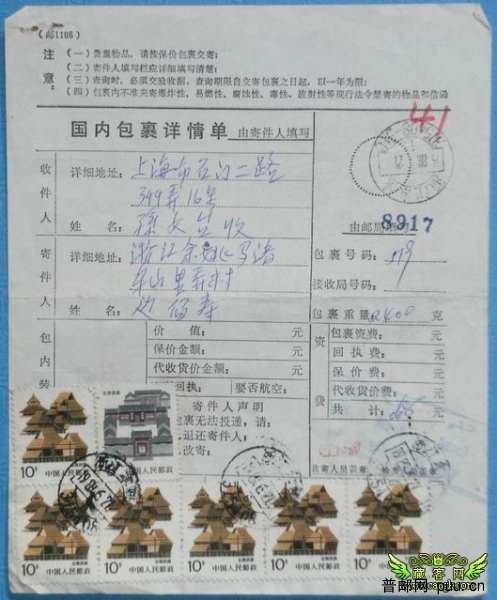 (邮1106)
注意:
(一)贵重物品,请按保价包裹交寄;
(二)寄件人填写栏应详细填写清楚;
(三)查询时,必须交验收据,查询期限自交寄包裹之日起,以一年为限;
(四)包裹内不准夹寄爆炸性、易燃性、腐蚀性、毒性、放射性等现行法令禁寄的物品和信函
41
国内包裹详情单 由寄件人填写
收件人
详细地址:
上海市石门二路
399弄16号
姓名:
孫大生收
寄件人
详细地址:
浙江余姚马渚
姓名:
由邮局
8917
包裹号码:
接收局号码:
包裹重量: 克
包内装
价值: 元
保价金额: 元
代收货价金额: 元
回执: 要否航空:
寄件人声明
包裹无法投递,请:
退还寄件人:
改寄:
资费
包裹资费: 元
回执费: 元
保价费: 元
代收货价费: 元
共计: 元
收寄人员签章
10分 中国人民邮政
中国人民邮政
10分 中国人民邮政
10分 中国人民邮政
10分 中国人民邮政
10分 中国人民邮政
10分 中国人民邮政
藏客网
普邮网-pdu.cn